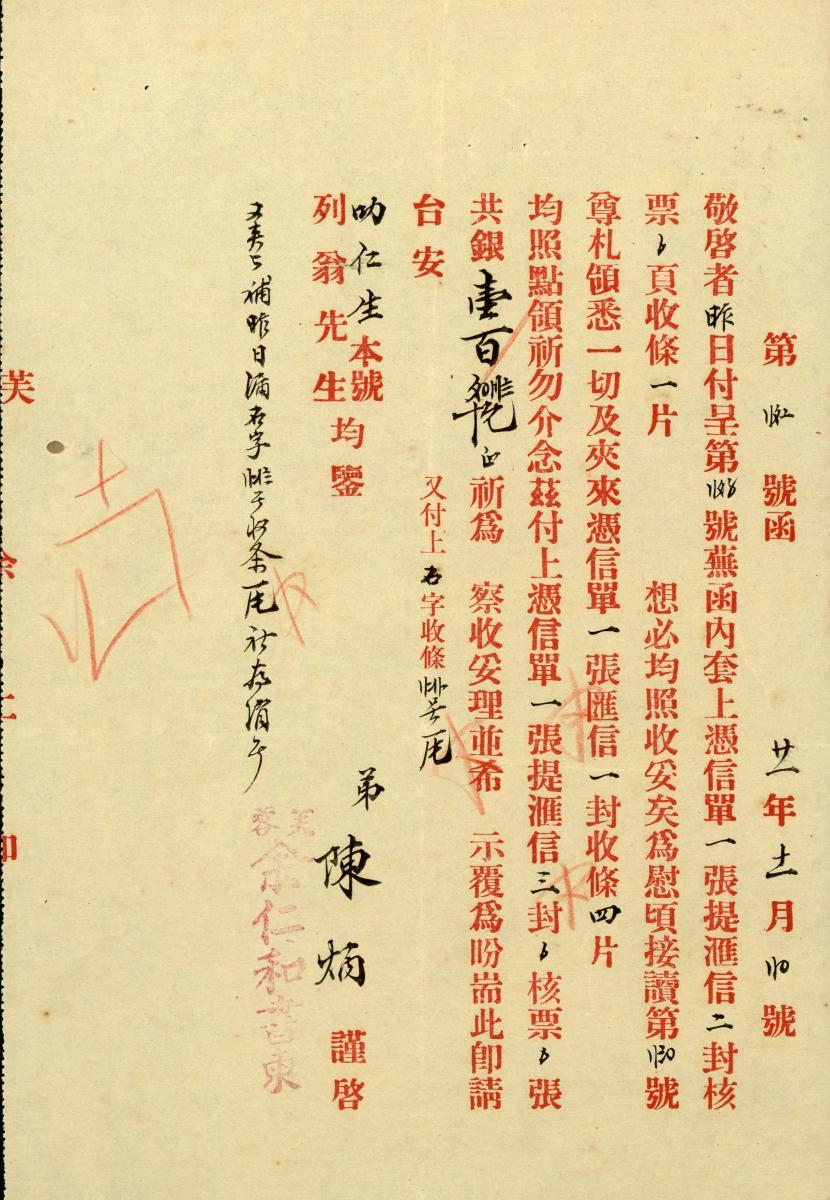 第 號函 廿一年十二月 號
敬啓者昨日付呈第 號蕪函內套上憑信單一張提滙信二封核
票 頁收條一片 想必均照收妥矣爲慰頃接讀第 號
尊札領悉一切及夾來憑信單一張匯信一封收條四片
均照點領祈勿介念茲付上憑信單一張提滙信三封 核票 張
共銀壹百 正祈爲 察收妥理並希 示覆爲盼耑此卽請
台安 又付上右字收條
叻仁生本號
列翁先生均鑒
弟陳炳謹啓
補昨日 右字 收条
芙蓉
余仁和書柬
芙 余 仁 和